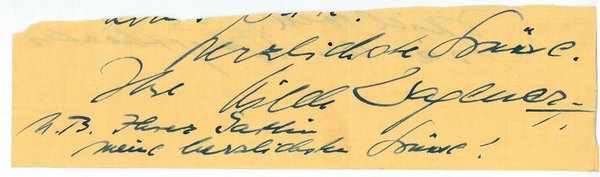 herzlichste Grüsse.
Ihre Hilde Wagener
N.B. Ihrer Gattin
meine herzlichsten Grüsse!